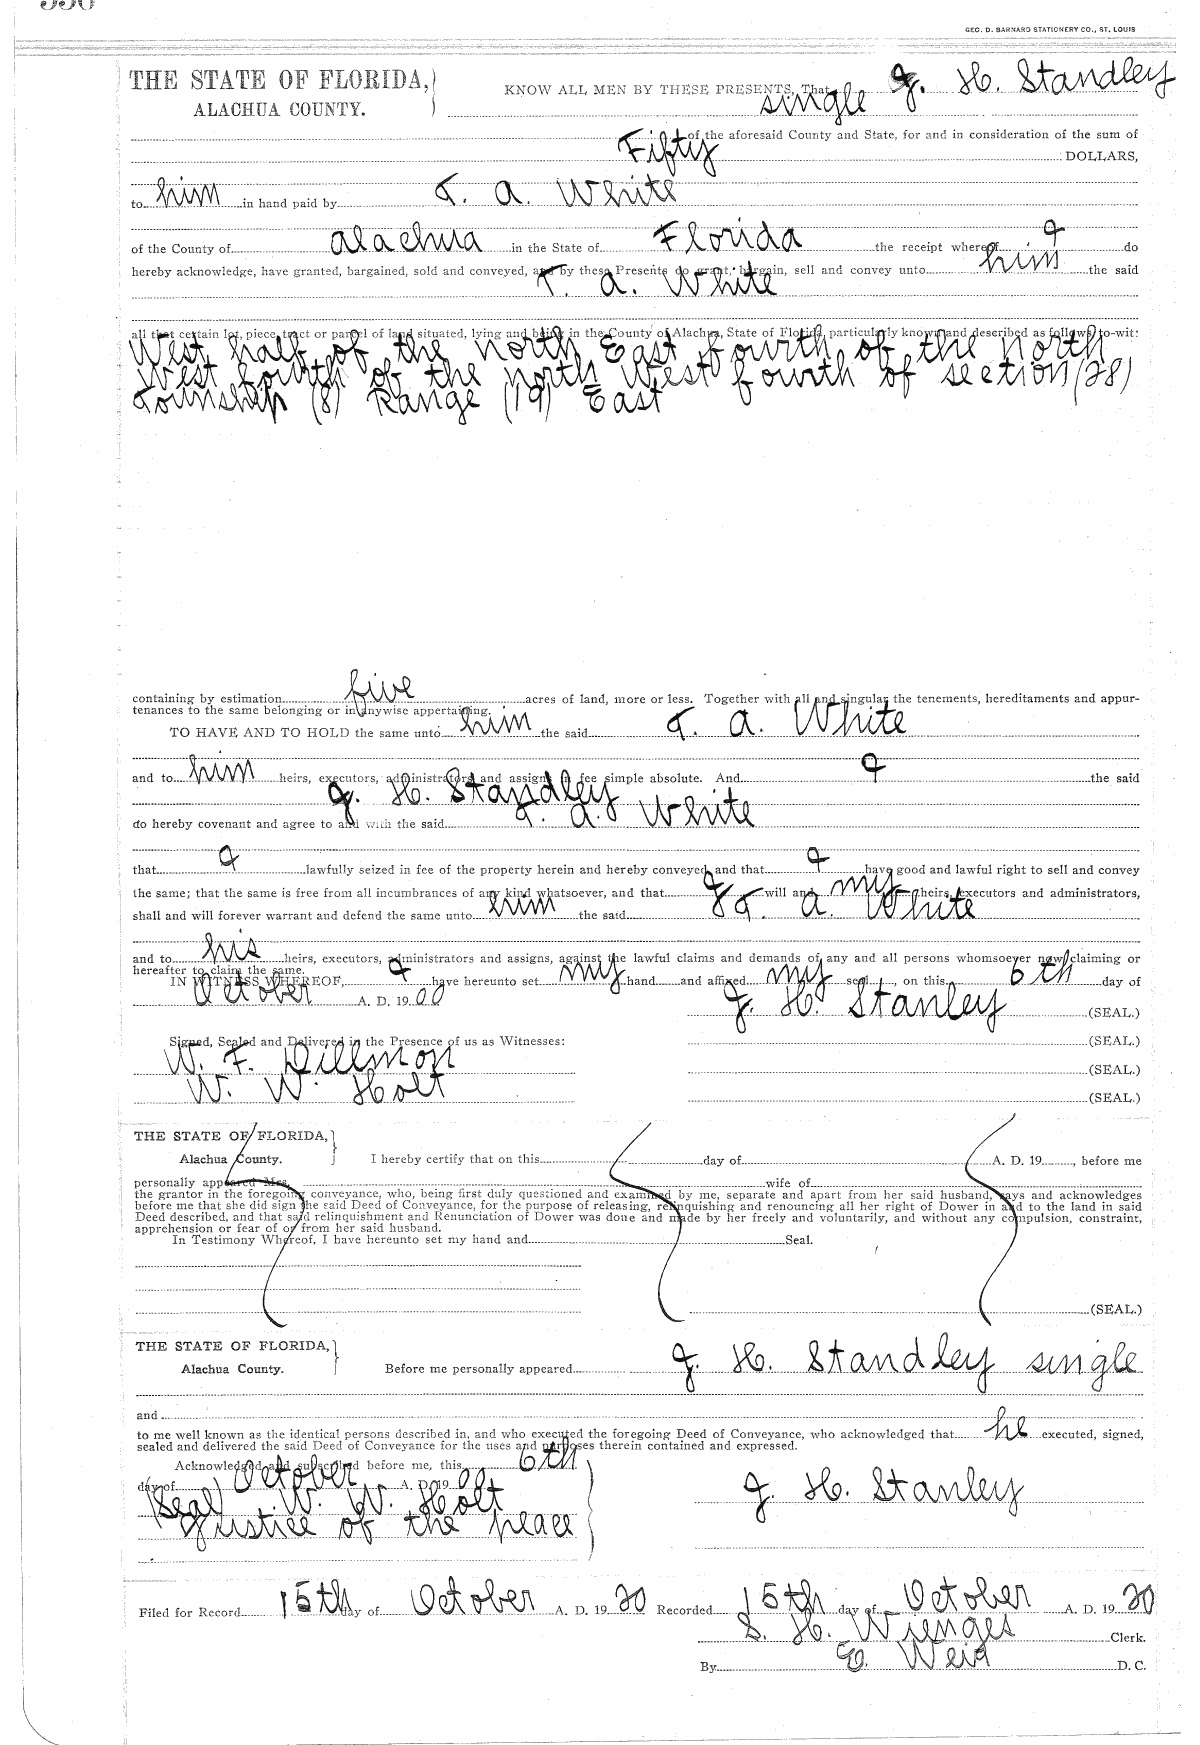 GEO. D. BARNARD STATIONERY CO., ST. LOUIS
THE STATE OF FLORIDA,
ALACHUA COUNTY.
KNOW ALL MEN BY THESE PRESENTS, That J. H. Standley
single
of the aforesaid County and State, for and in consideration of the sum of
Fifty DOLLARS,
to him in hand paid by T. A. White
of the County of Alachua in the State of Florida the receipt whereof I do
hereby acknowledge, have granted, bargained, sold and conveyed, and by these Presents do grant, bargain, sell and convey unto him the said
T. A. White
all that certain lot, piece, tract or parcel of land situated, lying and being in the County of Alachua, State of Florida, particularly known and described as follows, to-wit:
West half of the north East fourth of the north
West fourth of the north West fourth of section (28)
Township (8) Range (19) East
containing by estimation five acres of land, more or less. Together with all and singular the tenements, hereditaments and appur-
tenances to the same belonging or in anywise appertaining.
TO HAVE AND TO HOLD the same unto him the said T. A. White
and to him heirs, executors, administrators and assigns in fee simple absolute. And I the said
J. H. Standley
do hereby covenant and agree to and with the said T. A. White
that I lawfully seized in fee of the property herein and hereby conveyed and that I have good and lawful right to sell and convey
the same; that the same is free from all incumbrances of any kind whatsoever, and that I will and my heirs, executors and administrators,
shall and will forever warrant and defend the same unto him the said T. A. White
and to his heirs, executors, administrators and assigns, against the lawful claims and demands of any and all persons whomsoever now claiming or
hereafter to claim the same.
IN WITNESS WHEREOF, I have hereunto set my hand and affixed my seal, on this 6th day of
October A. D. 1900
J. H. Stanley (SEAL.)
Signed, Sealed and Delivered in the Presence of us as Witnesses: (SEAL.)
W. F. Dillmon (SEAL.)
W. W. Holt (SEAL.)
THE STATE OF FLORIDA,
Alachua County. I hereby certify that on this day of A. D. 19 , before me
personally appeared Mrs. wife of
the grantor in the foregoing conveyance, who, being first duly questioned and examined by me, separate and apart from her said husband, says and acknowledges
before me that she did sign the said Deed of Conveyance, for the purpose of releasing, relinquishing and renouncing all her right of Dower in and to the land in said
Deed described, and that said relinquishment and Renunciation of Dower was done and made by her freely and voluntarily, and without any compulsion, constraint,
apprehension or fear of or from her said husband.
In Testimony Whereof, I have hereunto set my hand and Seal.
(SEAL.)
THE STATE OF FLORIDA,
Alachua County. Before me personally appeared J. H. Standley single
and
to me well known as the identical persons described in, and who executed the foregoing Deed of Conveyance, who acknowledged that he executed, signed,
sealed and delivered the said Deed of Conveyance for the uses and purposes therein contained and expressed.
Acknowledged and subscribed before me, this 6th
day of October A. D. 19 00
(Seal) W. W. Holt
Justice of the peace
J. H. Stanley
Filed for Record 15th day of October A. D. 19 20 Recorded 15th day of October A. D. 19 20
S. H. Wienges Clerk.
By D. C.